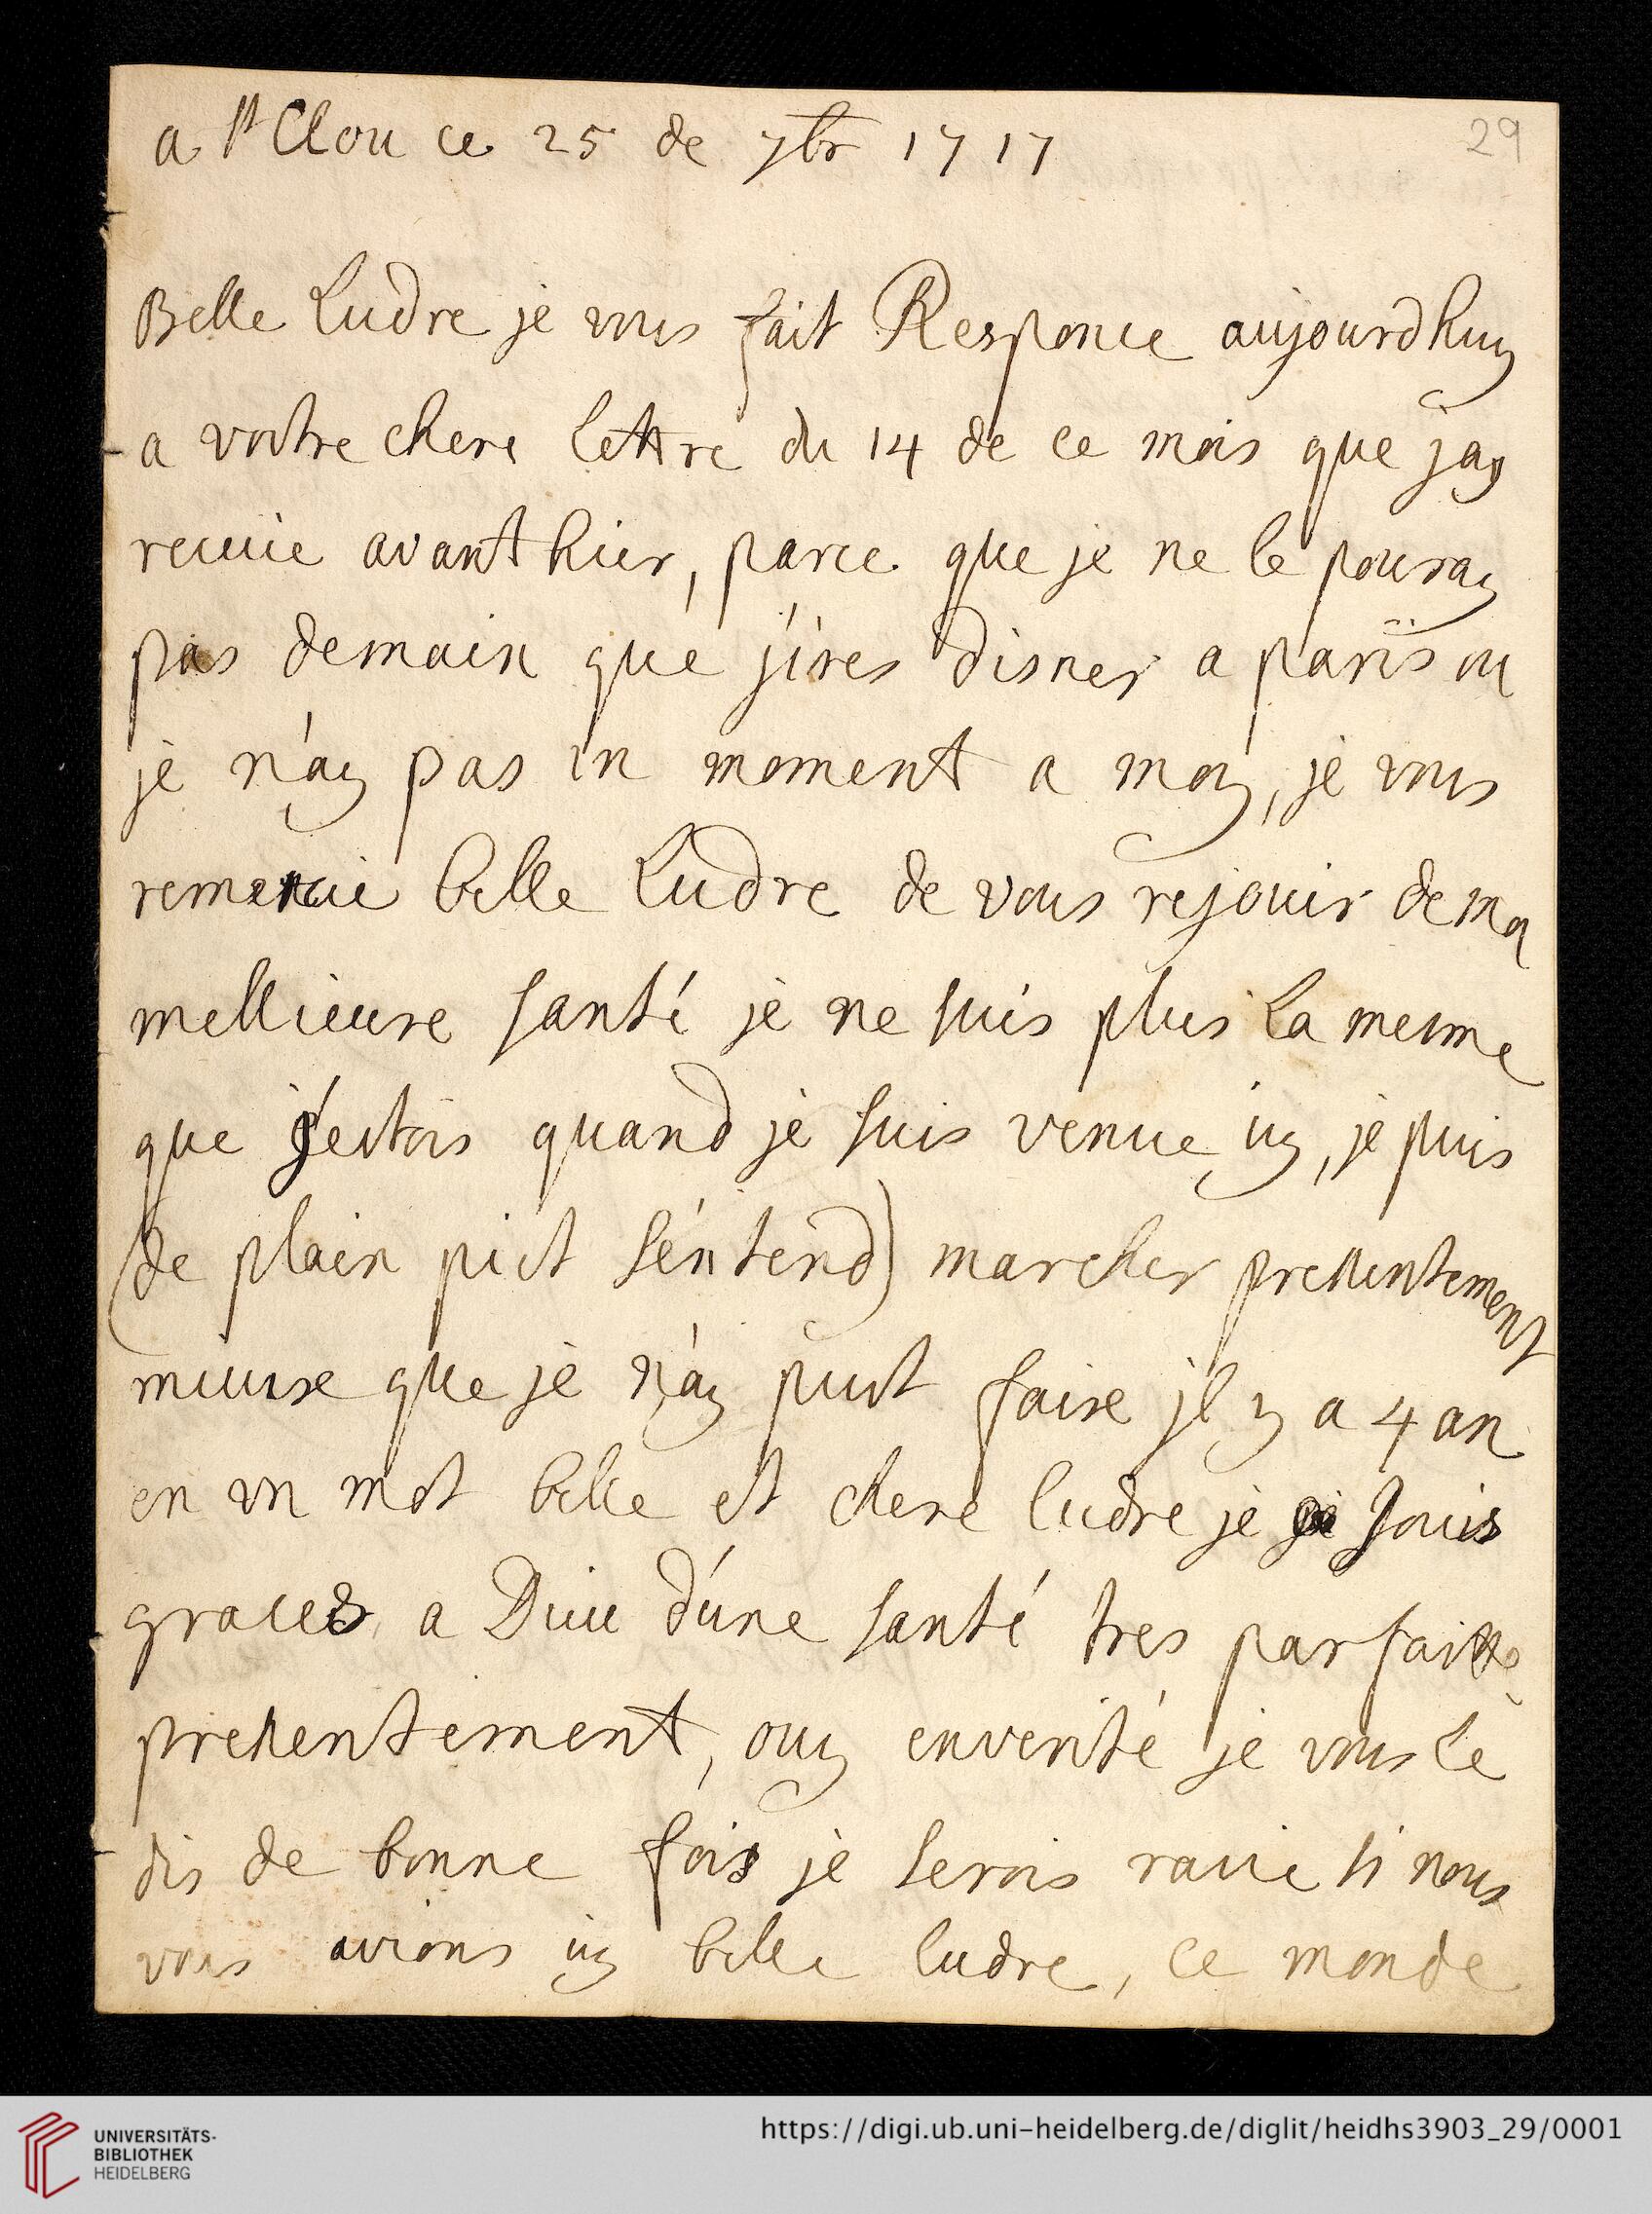 a St Clou ce 25 de 7br 1717
29
Belle Ludre je vous fait Responce aujourdhuy
a vostre chere lettre du 14 de ce mois que jay
receüe avanthier, parce que je ne le pouray
pas demain que j'ires disner a paris ou
je n'ay pas un moment a moy, je vous
remercie belle Ludre de vous rejouir de ma
mellieure santé je ne suis plus la mesme
que j'estois quand je suis venue icy, je puis
(de plain piet s'entend) marcher pressentement
mieux que je n'ay peust faire jl y a 4 an
en un mot belle et chere ludre je jouis
graces a Dieu d'une santé tres parfaitte
pressentement, ouy enverité je vous le
dis de bonne fois je serois ravie si nous
vous avions icy belle ludre, ce monde
UNIVERSITÄTS-
BIBLIOTHEK
HEIDELBERG
https://digi.ub.uni-heidelberg.de/diglit/heidhs3903_29/0001